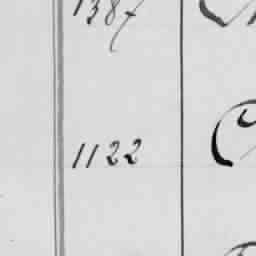 1387
1122